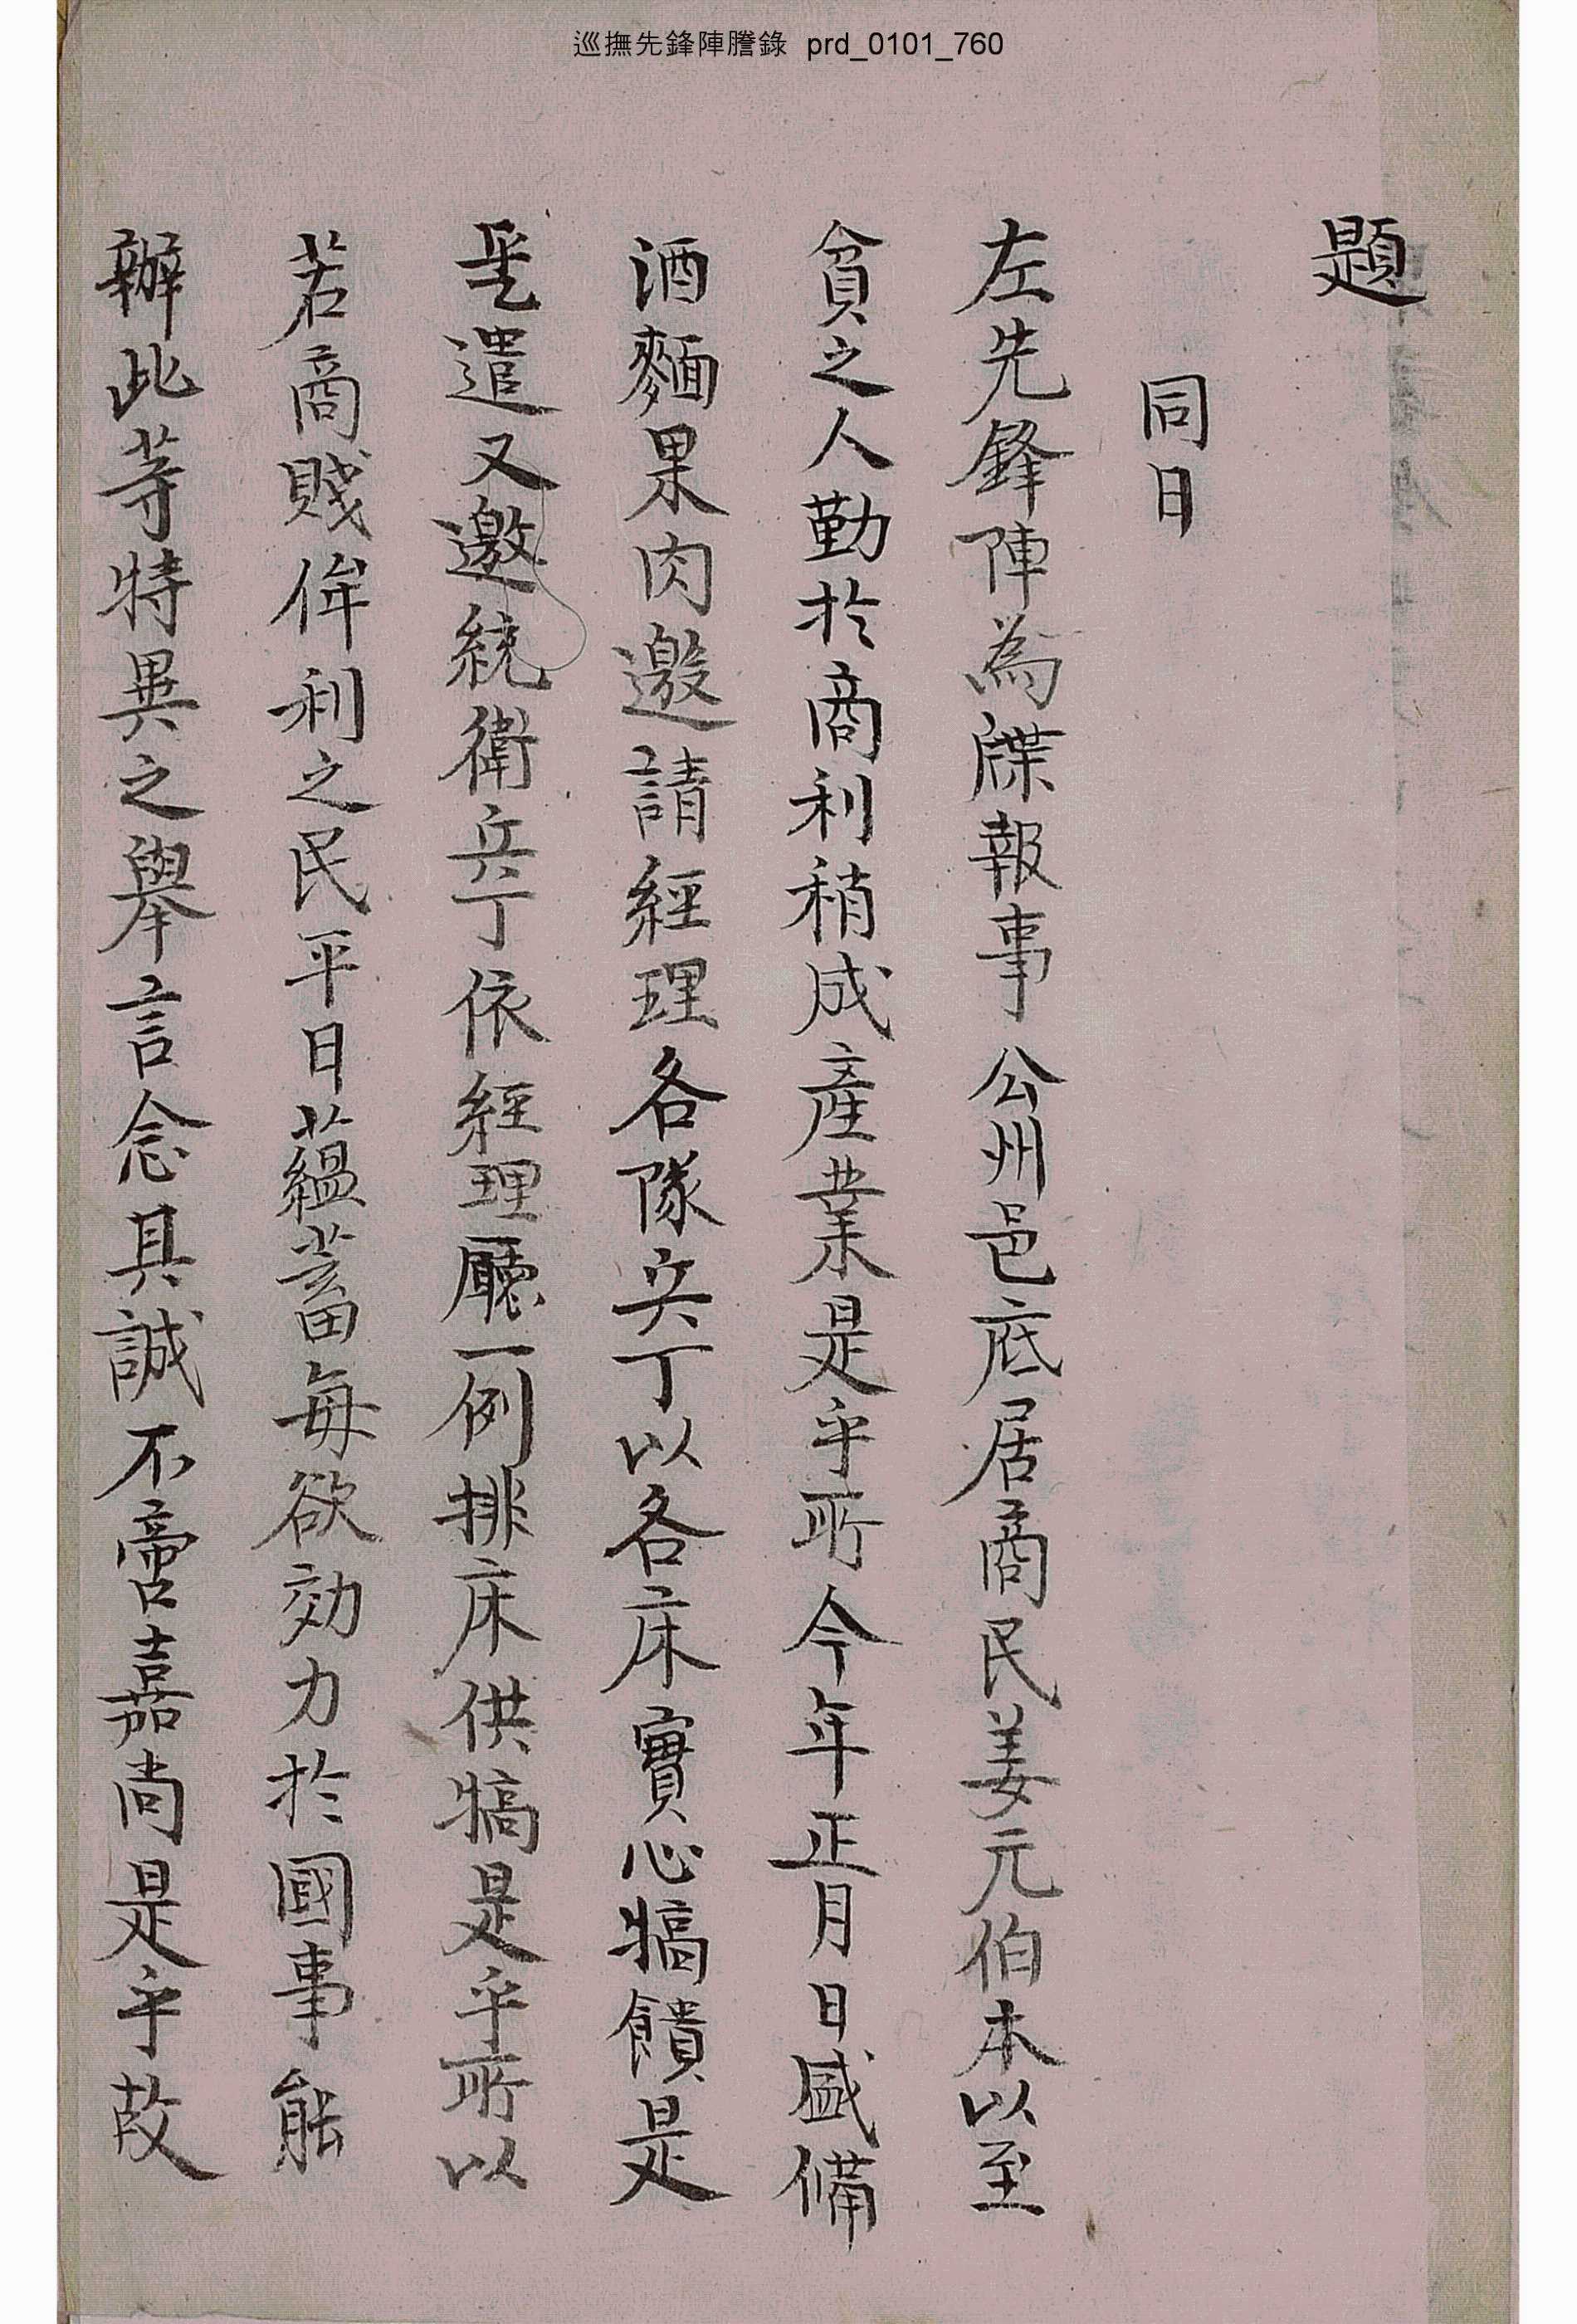 巡撫先鋒陣謄錄 prd_0101_760
題
同日
左先鋒陣為牒報事公州邑底居商民姜元伯本以至
貧之人勤於商利稍成產業是乎所今年正月日盛備
酒麵果肉邀請經理各隊兵丁以各床實心犒饋是
是遣又邀統衛兵丁依經理廳一例排床供犒是乎所以
若商賤侔利之民平日蘊蓄每欲効力於國事能
辦此等特異之擧言念其誠不啻嘉尚是乎故